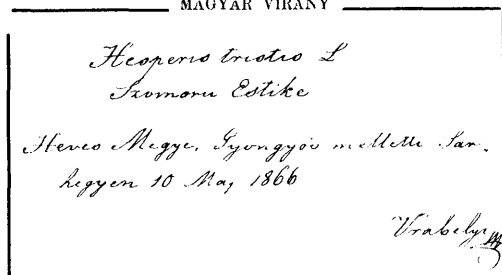 MAGYAR VIRÁNY
Hesperis tristis L
Szomoru Estike
Heves Megye, Gyöngyös mellett Sár,
hegyen 10 Maj 1866
Vrabélyi M